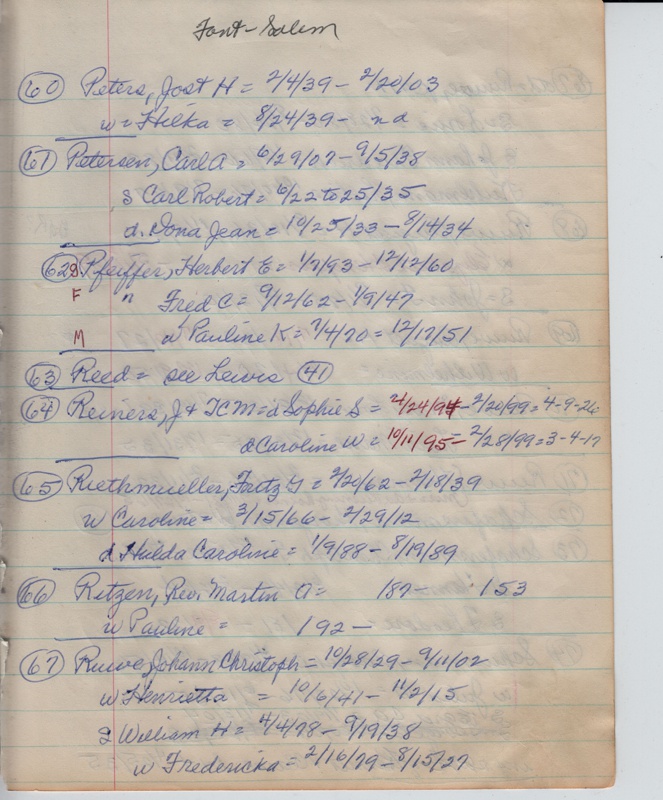 Font-Salem
60 Peters, Jost H = 2/4/39 - 2/20/03
w = Hilka = 8/24/39 - nd
61 Petersen, Carl A = 6/29/07 - 9/5/38
s Carl Robert = 6/22 to 25/35
d. Iona Jean = 10/25/33 - 8/14/34
62 S Pfeiffer, Herbert E = 1/7/93 - 12/12/60
F " Fred C = 9/12/62 - 1/9/47
M w Pauline K = 7/4/70 = 12/17/51
63 Reed = see Lewis 41
64 Reiners, J + TCM = d Sophie S = /24/94 - 2/20/99 = 4-9-26
d Caroline W = 10/11/95 - 2/28/99 = 3-4-17
65 Riethmueller, Fritz G = 2/20/62 - 2/18/39
w Caroline = 3/15/66 - 2/29/12
d Hulda Caroline = 1/9/88 - 8/19/89
66 Ritzen, Rev. Martin O = 187- 153
w Pauline = 192 -
67 Ruwe, Johann Christoph = 10/28/29 - 9/11/02
w Henrietta = 10/6/41 - 11/2/15
2 William H = 4/4/78 - 9/19/38
w Fredericka = 2/16/79 - 8/15/27